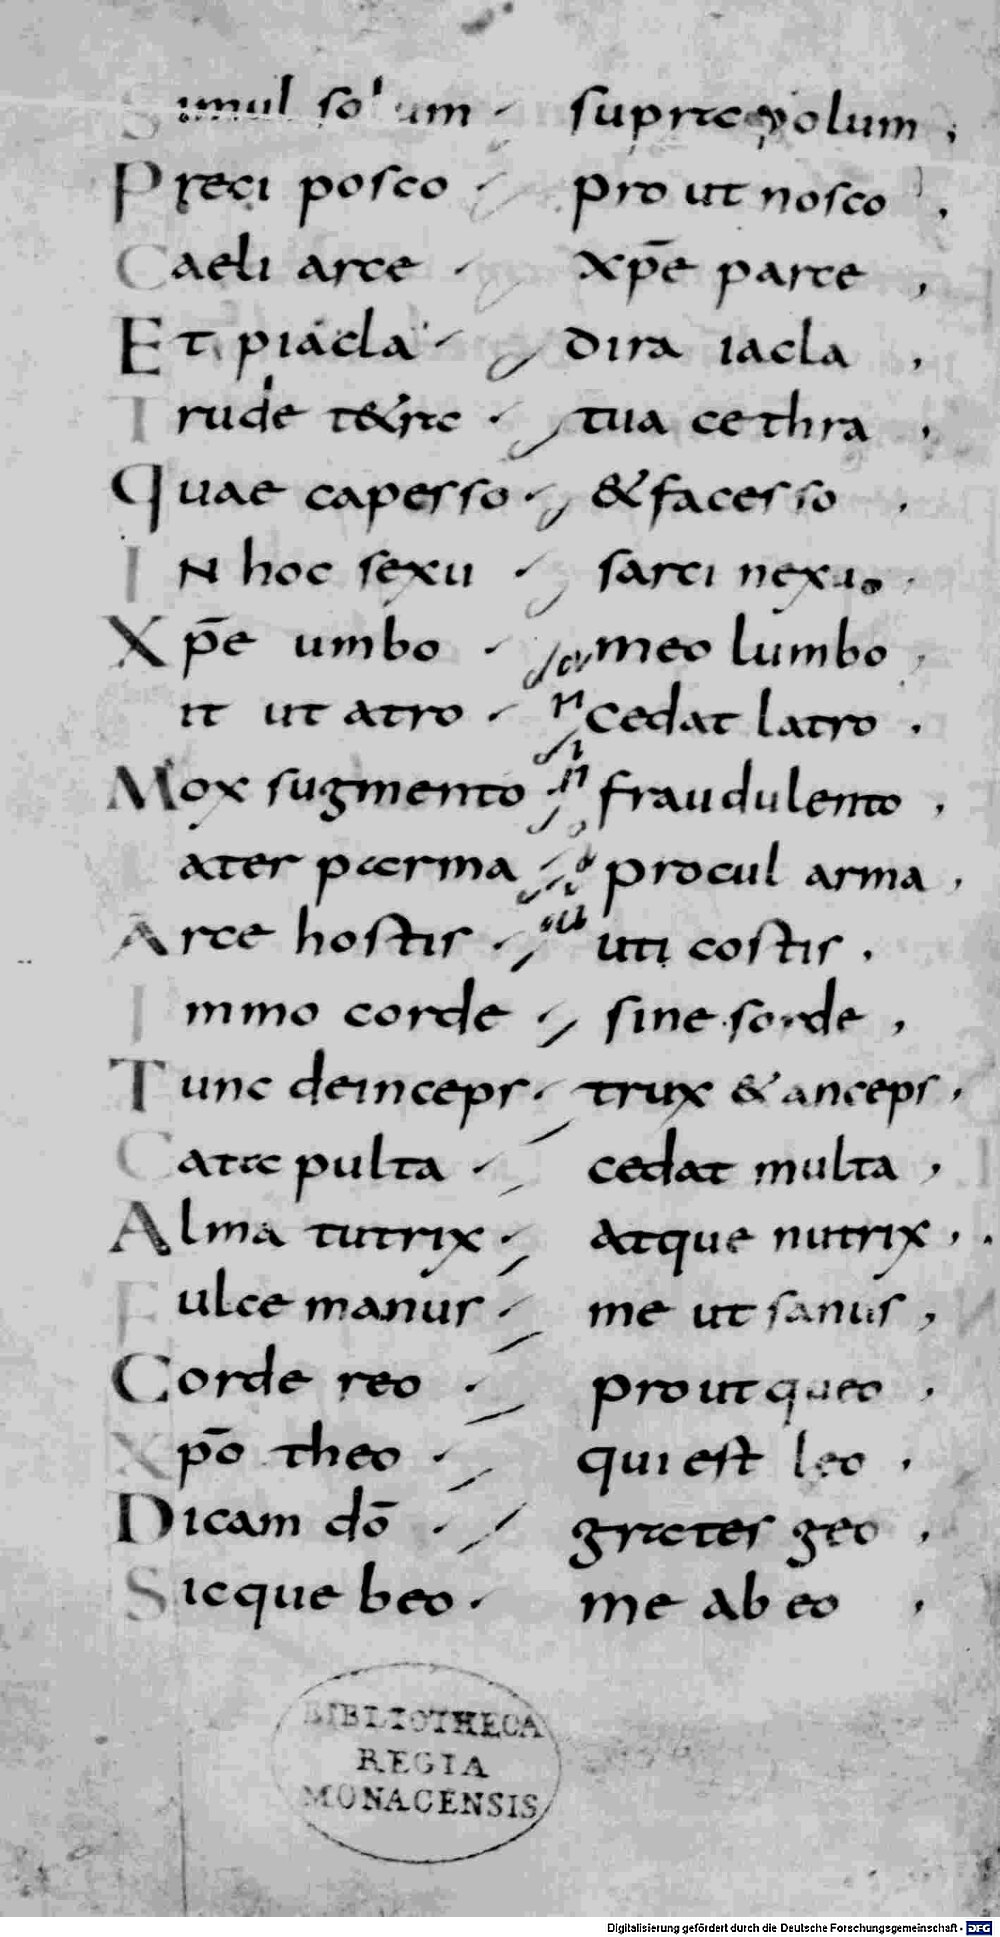 Simul solum supra polum
Preci posco prout nosco
Caeli arce xp̄e parce
Et piacla dira iacla
Trude tetra tua cethra
Quae capesso & facesso
In hoc sexu sarci nexu
Xp̄e umbo meo lumbo
it ut atro cedat latro
Mox sugmento fraudulento
ater parma procul arma
Arce hostis uti costis
Immo corde sine sorde
Tunc deinceps trux & anceps
Cata pulta cedat multa
Alma tutrix atque nutrix
Fulce manus me ut sanus
Corde reo prout queo
Xp̄o theo qui est leo
Dicam dō grates geo
Sicque beo me ab eo
BIBLIOTHECA
REGIA
MONACENSIS
Digitalisierung gefördert durch die Deutsche Forschungsgemeinschaft - DFG